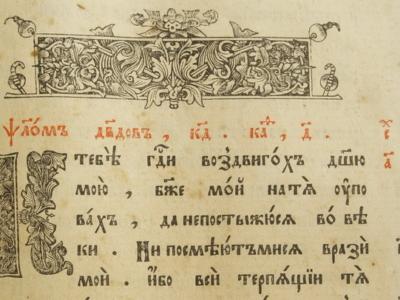 Ѱало́мъ дв҃довъ , кд҃ . каѳ , д҃ .
К тебѣ гдⷭ҇и воздвигохъ дш҃ю
мою , бж҃е мой на тѧ упо
вахъ , да непостыжюсѧ во вѣ
ки . Ни посмѣютъмисѧ врази
мои . ибо вси терпѧщіи тѧ